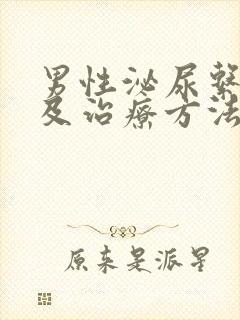 男性泌尿系
及治療方法
原来是派星